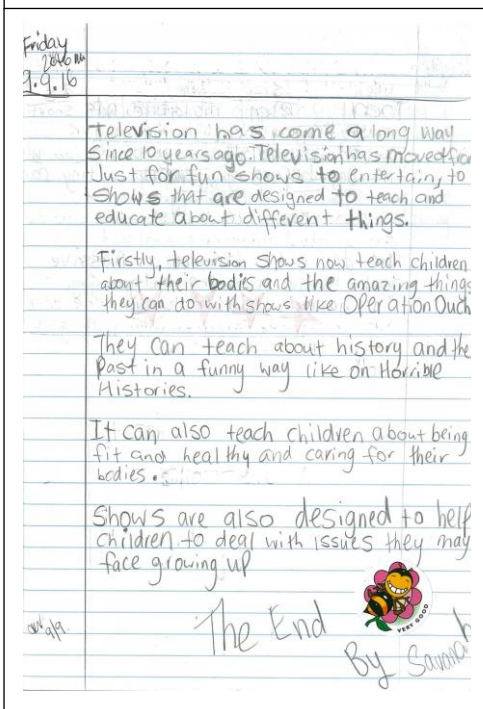 Friday
9.9.16
television has come a long way
Since 10 years ago. Television has moved from
Just for fun shows to entertain, to
shows that are designed to teach and
educate about different things.
Firstly, television shows now teach children
about their bodies and the amazing things
they can do with shows like Operation Ouch
They can teach about history and the
Past in a funny way like on Horrible
Histories.
It can also teach children about being
fit and healthy and caring for their
bodies.
Shows are also designed to help
children to deal with issues they may
face growing up
The End
VERY GOOD
9/9.
By Savanah